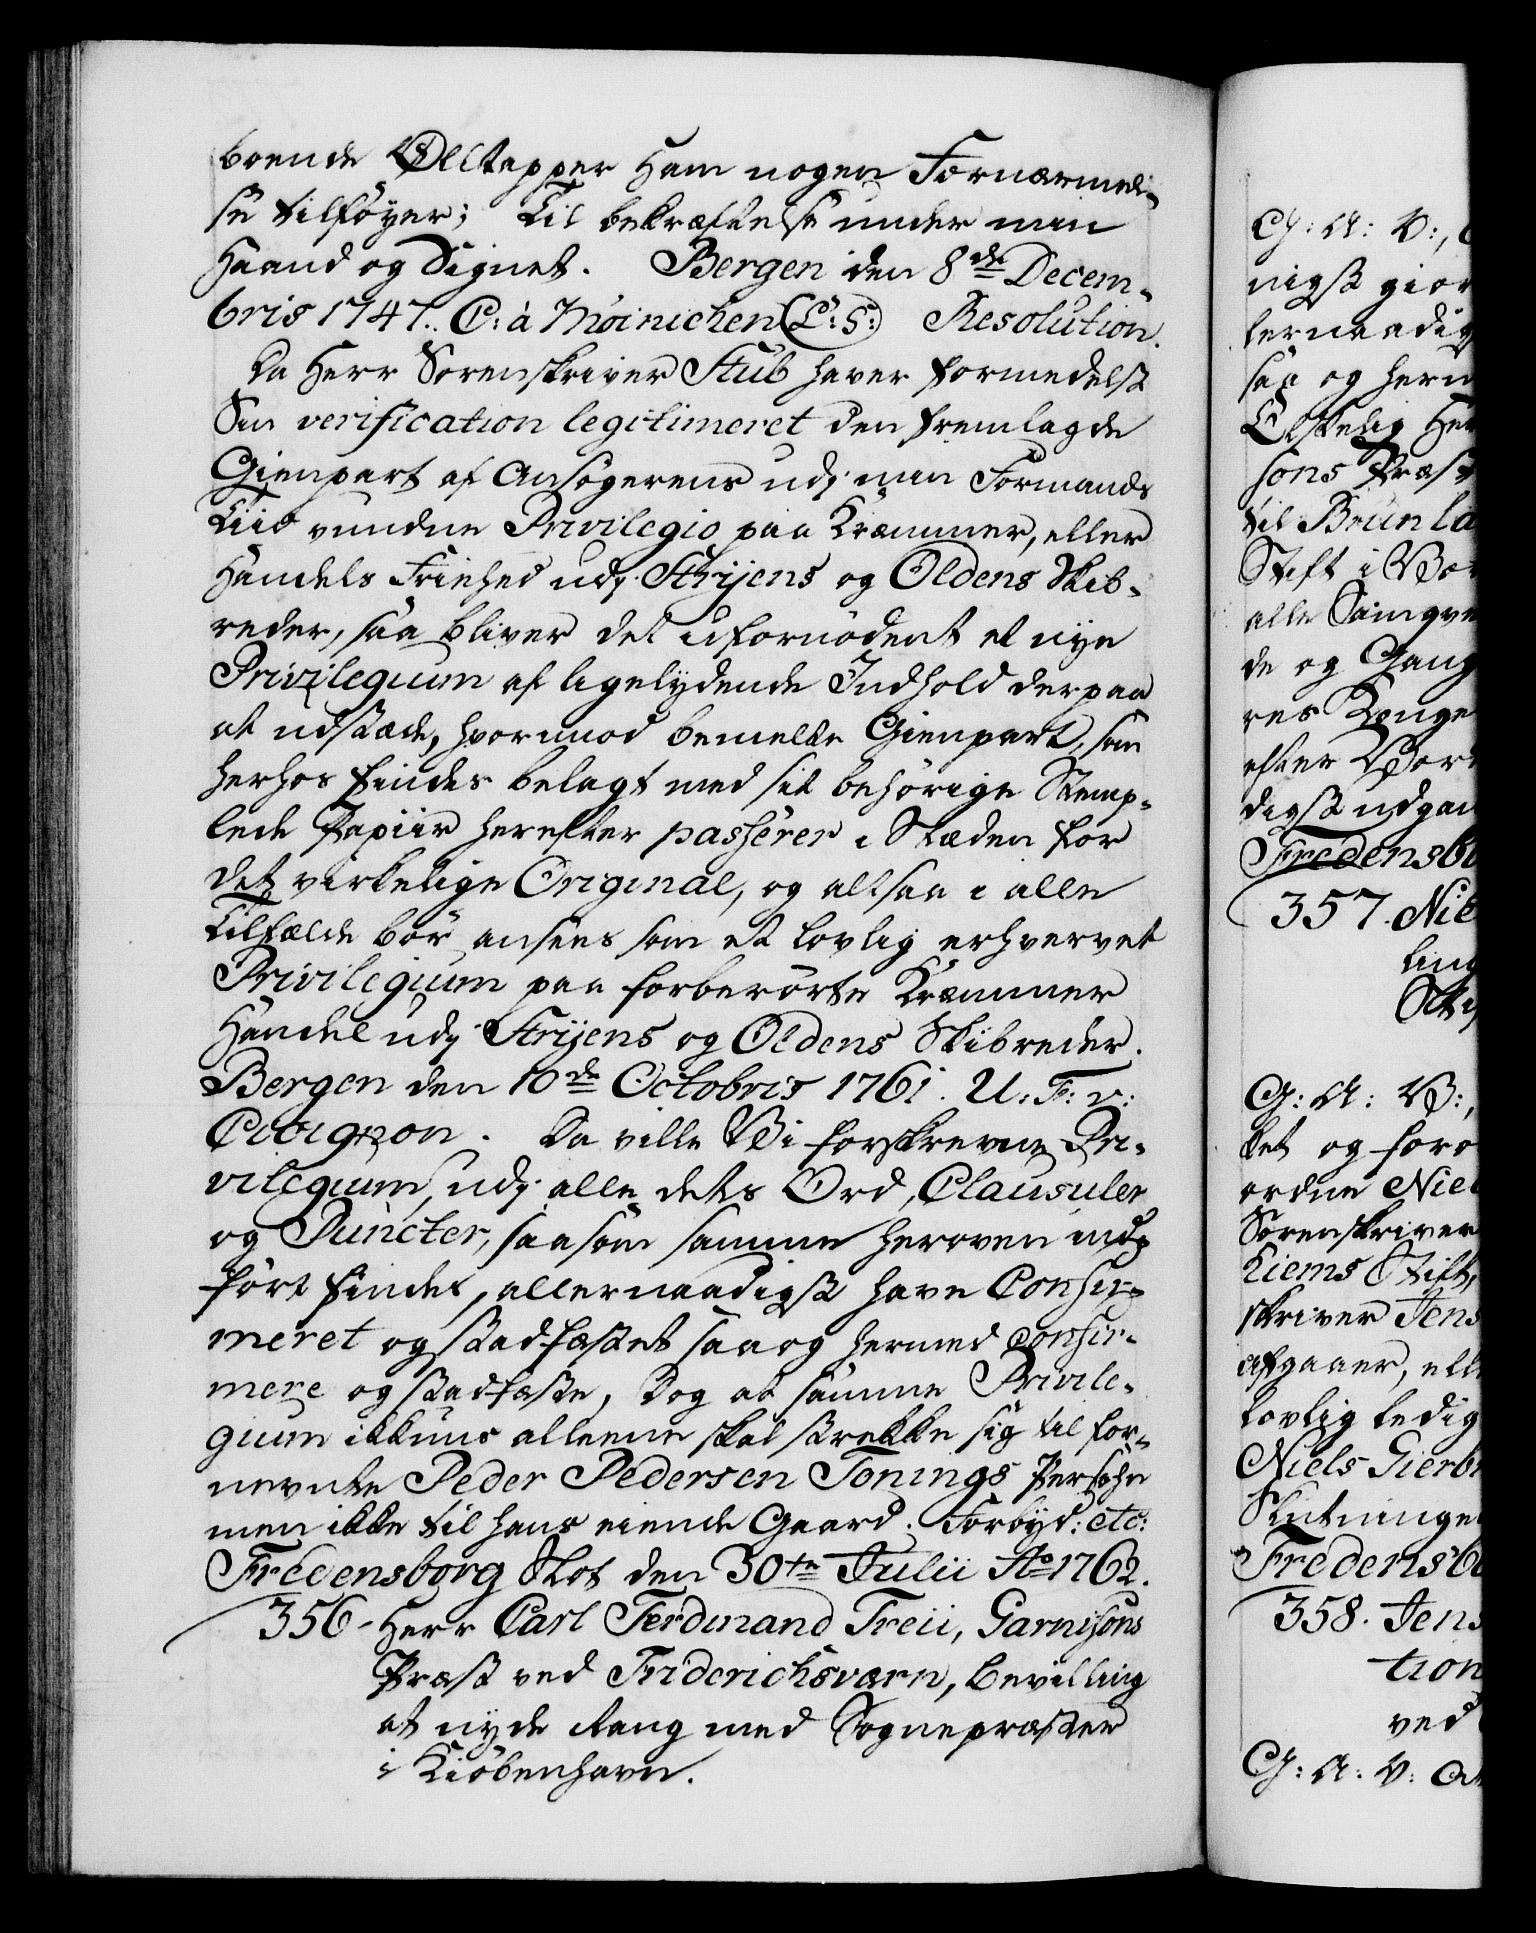 boende Ølltapper ham nogen Fornærmel-
se tilføyer; Til bekræftelse under min
Haand og Signet. Bergen den 8de Decem-
bris 1747. C: à Möinichen (L: S:) Resolution.
Da Herr Sorenskriver Stub haver formedelst
Sin verification legitimeret den fremlagde
Gienpart af Ansøgerens udj min Formands
Tiid vundne Privilegio paa Kræmmer, eller
Handels Friehed udj Strijens og Oldens Skib-
reder, saa bliver det ufornødent et nye
Privilegium af ligelydende Indhold derpaa
at udstæde, hvorimod bemelte Gienpart, som
herhos findes belagt med sit behörige Stemp-
lede Papiir herefter passerer i Stæden for
det virkelige Original, og altsaa i alle
Tilfælde bör ansees som et lovlig erhvervet
Privilegium paa forberörte Kræmmer
Handel udj Strijens og Oldens Skibreder.
Bergen den 10de Octobris 1761. U: F: v:
Cicignon. Da ville Vi forskrevne Pri-
vilegium, udj alle dets Ord, Clausuler
og Puncter, saasom samme heroven ind-
fört findes, allernaadigst have Confir-
meret og stadfæstet saa og hermed confir-
mere og stadfæste, Dog at samme Privile-
gium ikkuns alleene skal strekke sig til for-
nevnte Peder Pedersen Tonings Persohn
men ikke til hans eiende Gaard. Forbyd: etc:
Fredensborg Slot den 30te Julii Ao 1762.
356- Herr Carl Ferdinand Freii, Garnisons
Præst ved Friderichsværn, Bevilling
at nyde Rang med Sognepræster
i Kiöbenhavn.
G: A: V:,
nigst
allernaadig
saa og
Elskelig
sons Præst
til
Stift i
alle
de og
res
efter
digst
357.
G: A: V:,
og
ordne
Sorenskriver
Stift,
skriver Jens
afgaaer,
lovlig ledig
Niels
358. Jens
tion
ved
G: A: V: